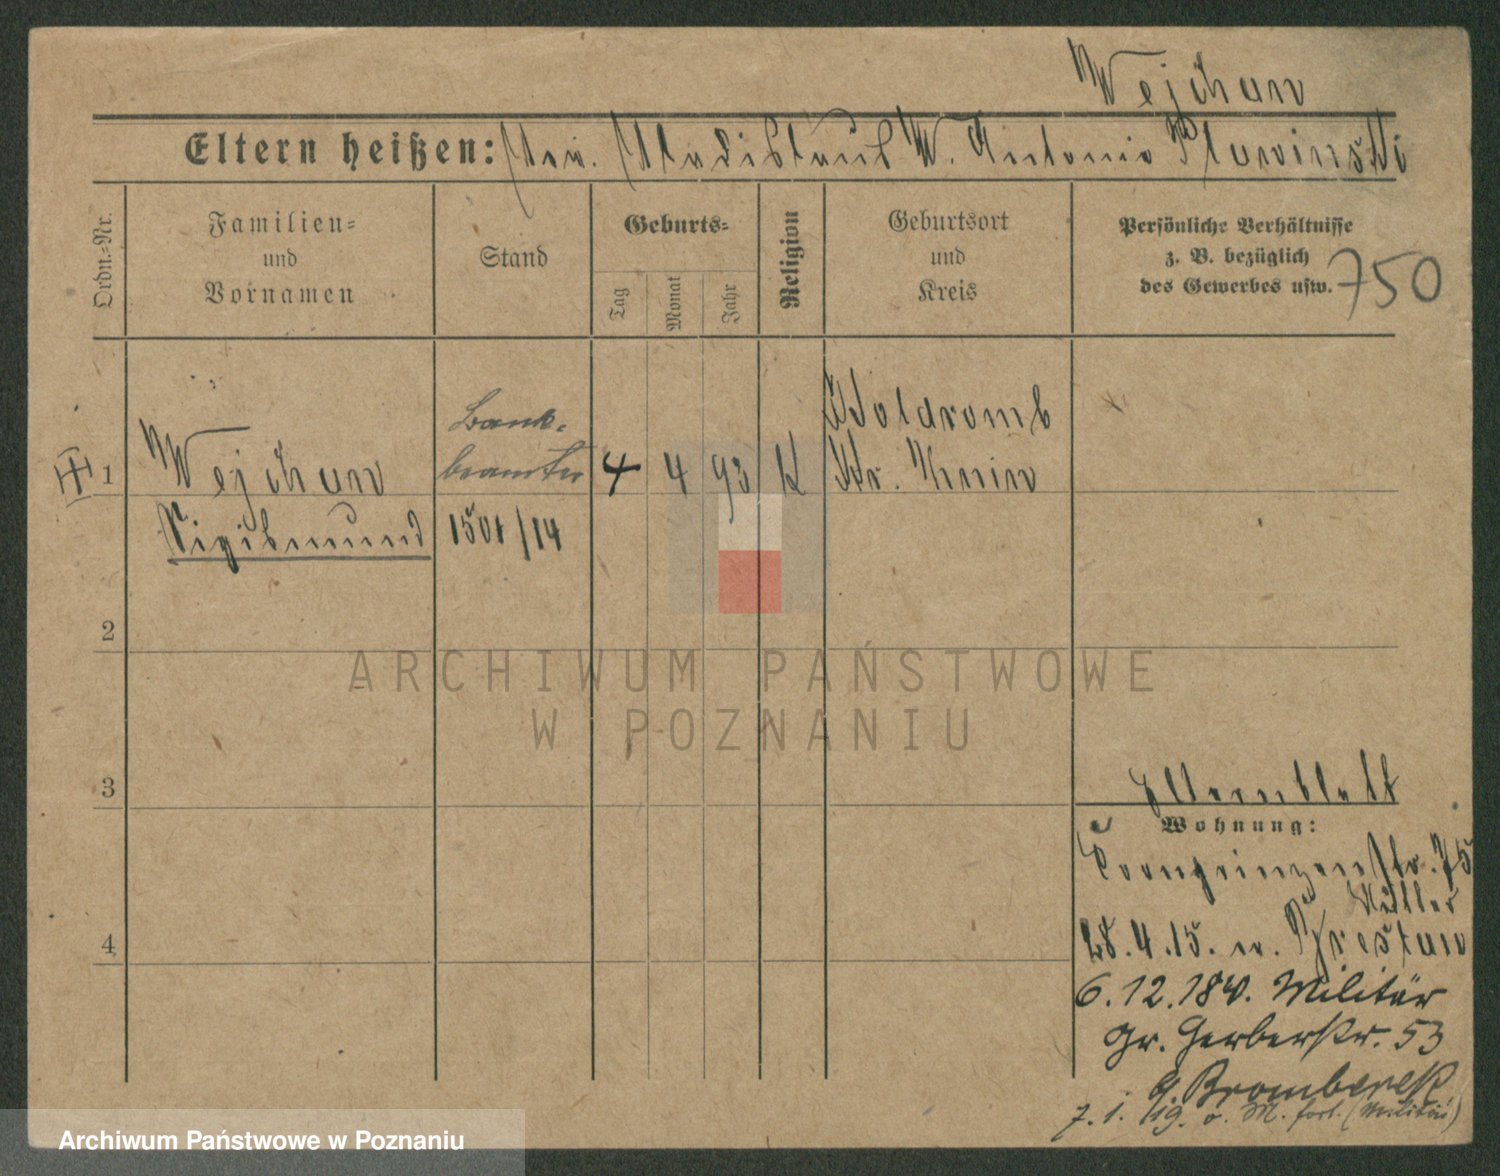 Wejchan
Eltern heißen: Wladislaus W. Antonie
Ordn.=Nr.
Familien=
und
Vornamen
Stand
Geburts=
Tag
Monat
Jahr
Religion
Geburtsort
und
Kreis
Persönliche Verhältnisse
z. B. bezüglich
des Gewerbes usw.
750
1
Wejchan
Sigismund
Bank=
beamter
1501/14
4 4 93 K
Kr. Znin
2
3
4
Elternblatt
Wohnung:
Kronprinzenstr. 75
Müller
28.4.15. n. Breslau
6.12.18 v. Militär
Gr. Gerberstr. 53
Bromberek
7. 1. 19. v. M. fort. (Militär)
ARCHIWUM PAŃSTWOWE
W POZNANIU
Archiwum Państwowe w Poznaniu